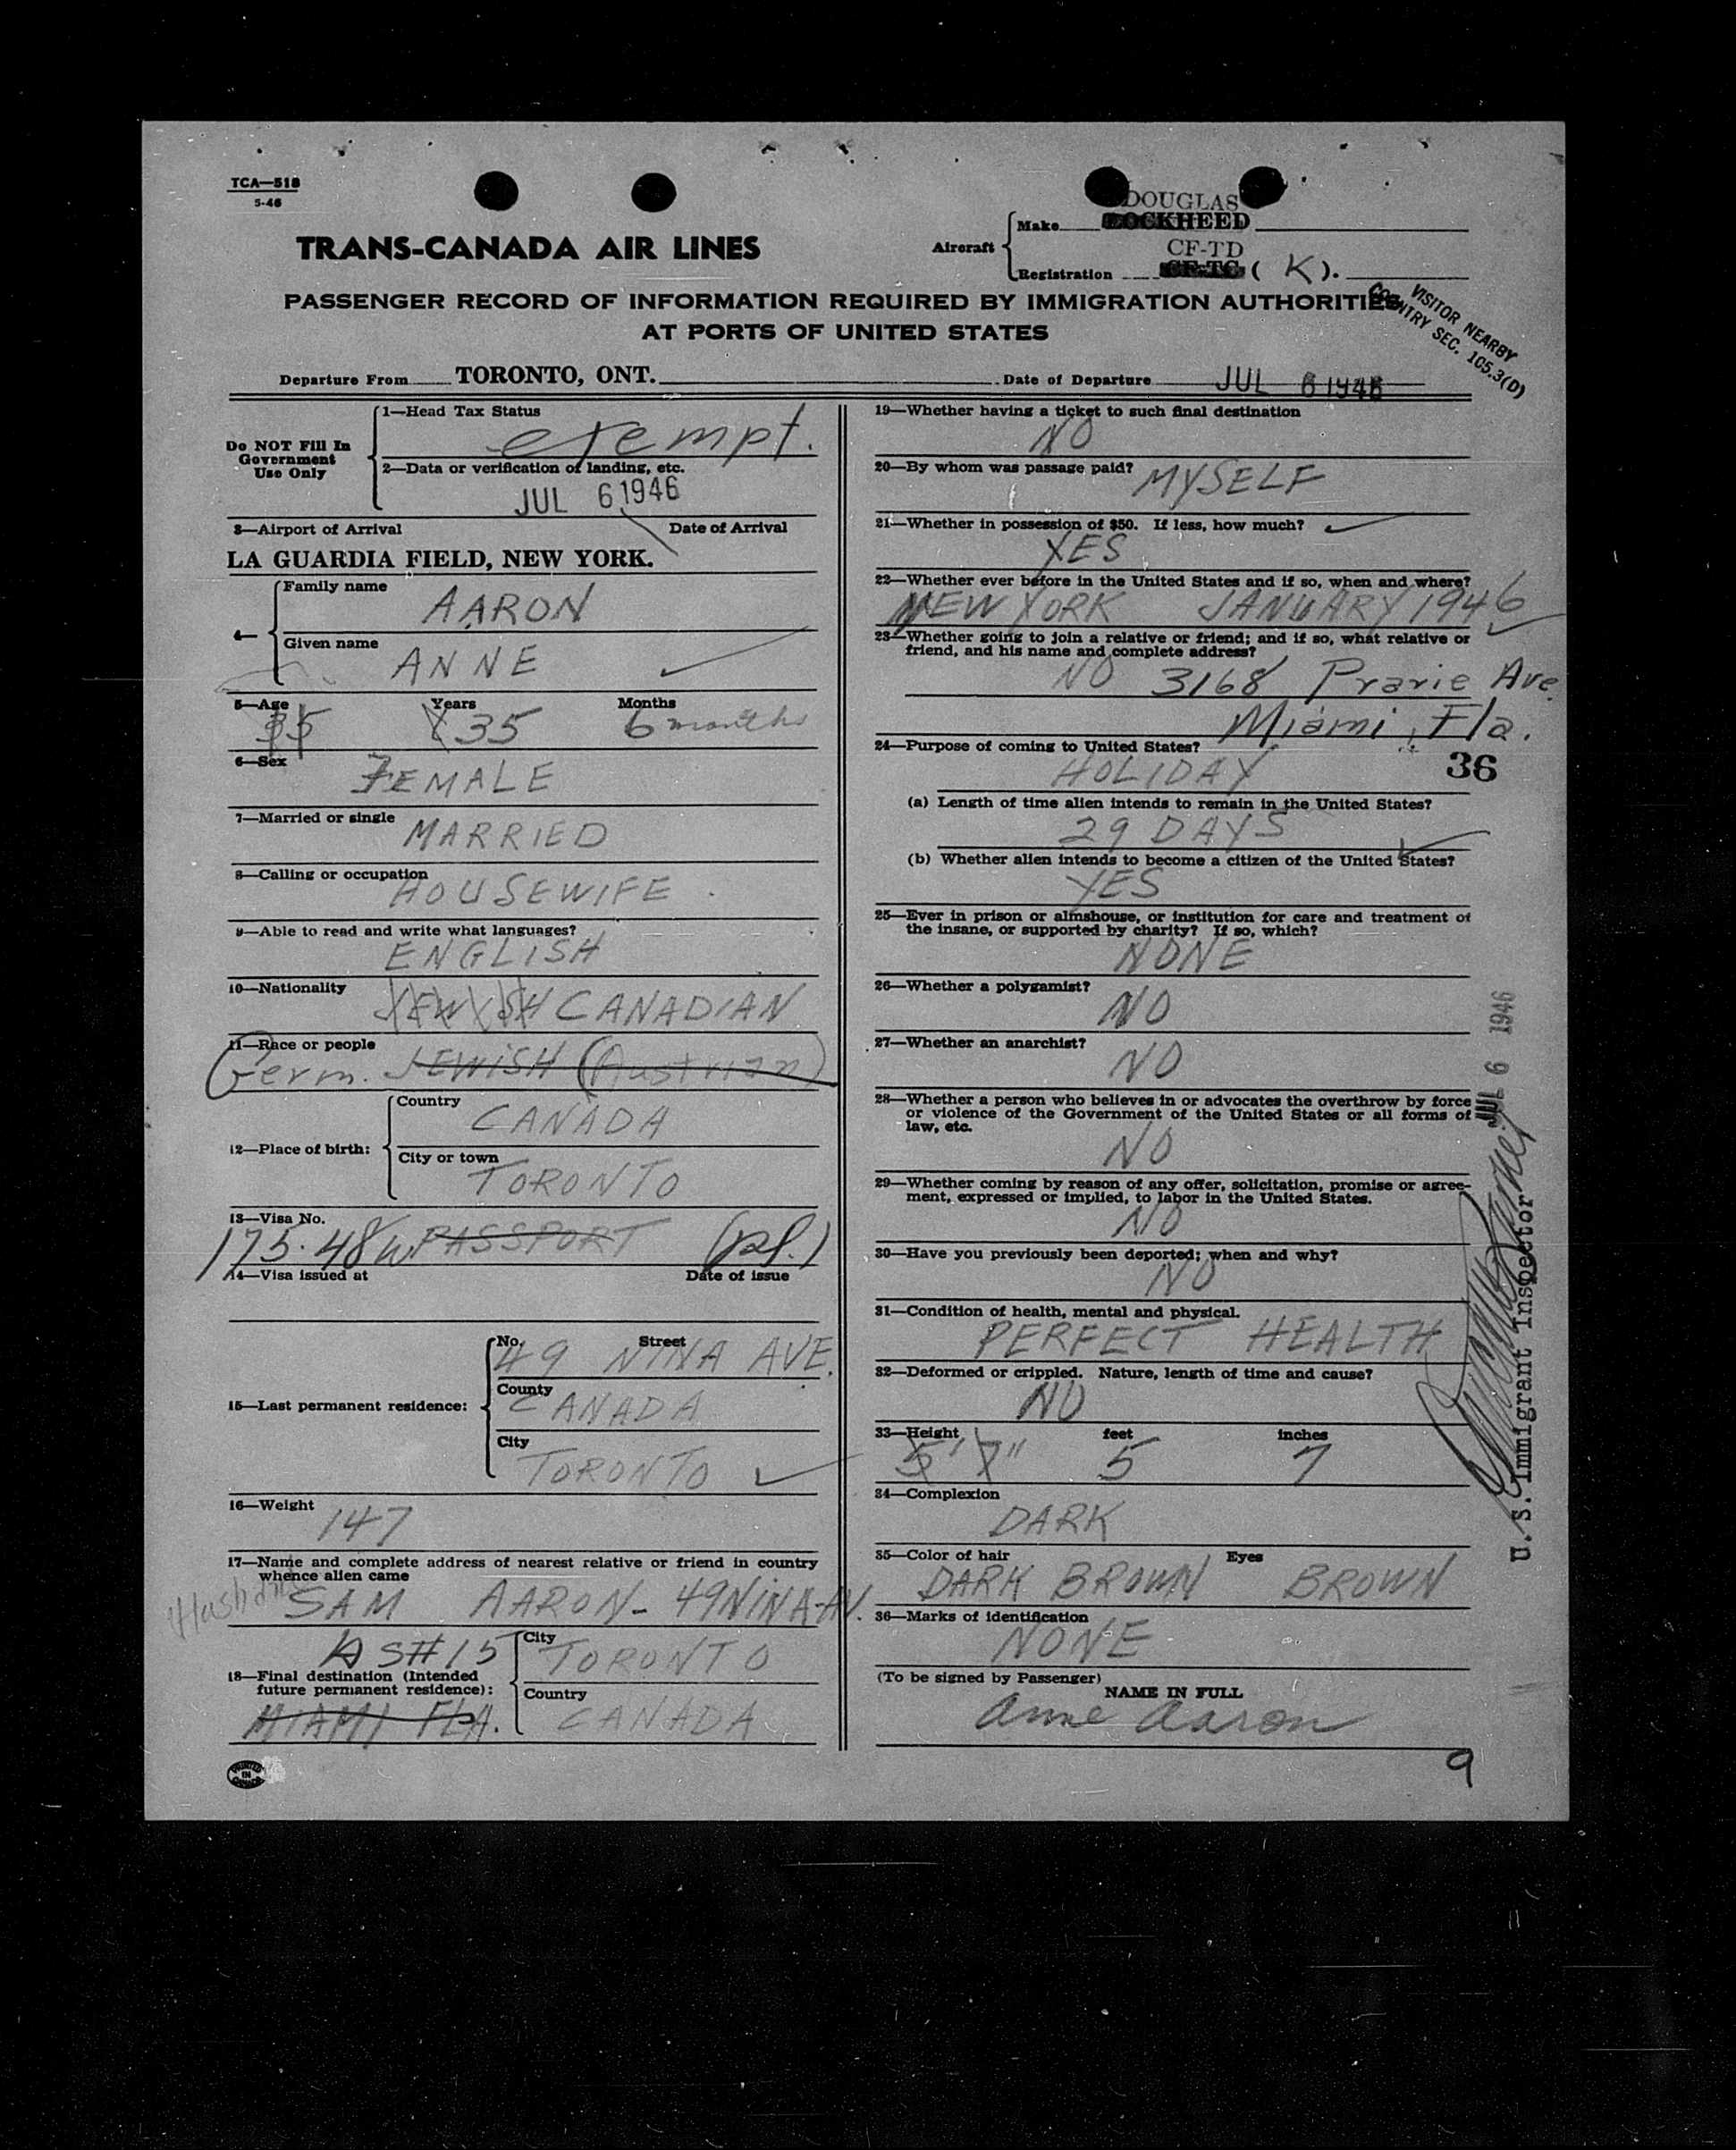 TCA—518
5-46
DOUGLAS
Aircraft
Make LOCKHEED
CF-TD
Registration CF-TC ( K ).
TRANS-CANADA AIR LINES
PASSENGER RECORD OF INFORMATION REQUIRED BY IMMIGRATION AUTHORITIES
AT PORTS OF UNITED STATES
VISITOR NEARBY
COUNTRY SEC. 105.3(D)
Departure From TORONTO, ONT. Date of Departure JUL 6 1946
Do NOT Fill In
Government
Use Only
1—Head Tax Status
exempt.
2—Data or verification of landing, etc.
JUL 6 1946
3—Airport of Arrival Date of Arrival
LA GUARDIA FIELD, NEW YORK.
4—
Family name
AARON
Given name
ANNE
5—Age Years Months
35 35 6 months
6—Sex
FEMALE
7—Married or single
MARRIED
8—Calling or occupation
HOUSEWIFE
9—Able to read and write what languages?
ENGLISH
10—Nationality
JEWISH CANADIAN
11—Race or people
Germ. JEWISH (Austrian)
12—Place of birth:
Country
CANADA
City or town
TORONTO
13—Visa No.
175.48 w. PASSPORT (pl.)
14—Visa issued at Date of issue
15—Last permanent residence:
No. Street
49 NINA AVE.
County
CANADA
City
TORONTO
16—Weight
147
17—Name and complete address of nearest relative or friend in country
whence alien came
Husband SAM AARON - 49 NINA AV.
AS #15
City
TORONTO
18—Final destination (Intended
future permanent residence):
Country
MIAMI FLA. CANADA
PRINTED
IN
CANADA
19—Whether having a ticket to such final destination
NO
20—By whom was passage paid?
MYSELF
21—Whether in possession of $50. If less, how much?
YES
22—Whether ever before in the United States and if so, when and where?
NEW YORK JANUARY 1946
23—Whether going to join a relative or friend; and if so, what relative or
friend, and his name and complete address?
NO 3168 Prarie Ave.
Miami, Fla.
24—Purpose of coming to United States?
HOLIDAY
36
(a) Length of time alien intends to remain in the United States?
29 DAYS
(b) Whether alien intends to become a citizen of the United States?
YES
25—Ever in prison or almshouse, or institution for care and treatment of
the insane, or supported by charity? If so, which?
NONE
26—Whether a polygamist?
NO
27—Whether an anarchist?
NO
28—Whether a person who believes in or advocates the overthrow by force
or violence of the Government of the United States or all forms of
law, etc.
NO
29—Whether coming by reason of any offer, solicitation, promise or agree-
ment, expressed or implied, to labor in the United States.
NO
30—Have you previously been deported; when and why?
NO
31—Condition of health, mental and physical.
PERFECT HEALTH
32—Deformed or crippled. Nature, length of time and cause?
NO
33—Height feet inches
5' 7" 5 7
34—Complexion
DARK
35—Color of hair Eyes
DARK BROWN BROWN
36—Marks of identification
NONE
(To be signed by Passenger)
NAME IN FULL
Anne Aaron
9
JUL 6 1946
U. S. Immigrant Inspector